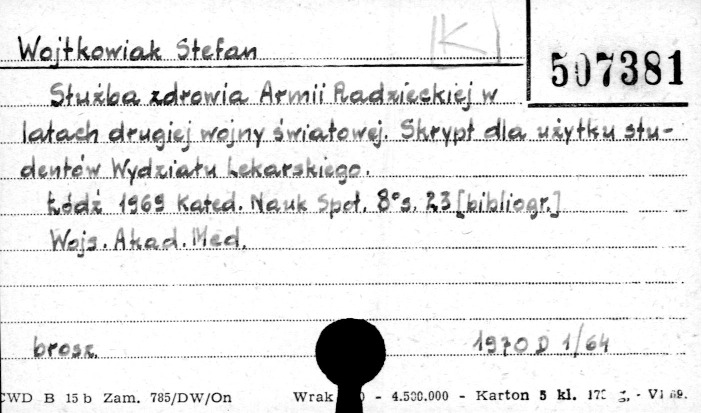 Wojtkowiak Stefan [K]
507381
Służba zdrowia Armii Radzieckiej w
latach drugiej wojny światowej. Skrypt dla użytku stu-
dentów Wydziału Lekarskiego.
Łódź 1969 Kated. Nauk Społ. 8° s. 23 [bibliogr.]
Wojs. Akad. Med.
brosz. 1970 D 1/64
CWD B 15 b Zam. 785/DW/On Wrak - 4.500.000 - Karton 5 kl. 170 g. - VI 69.